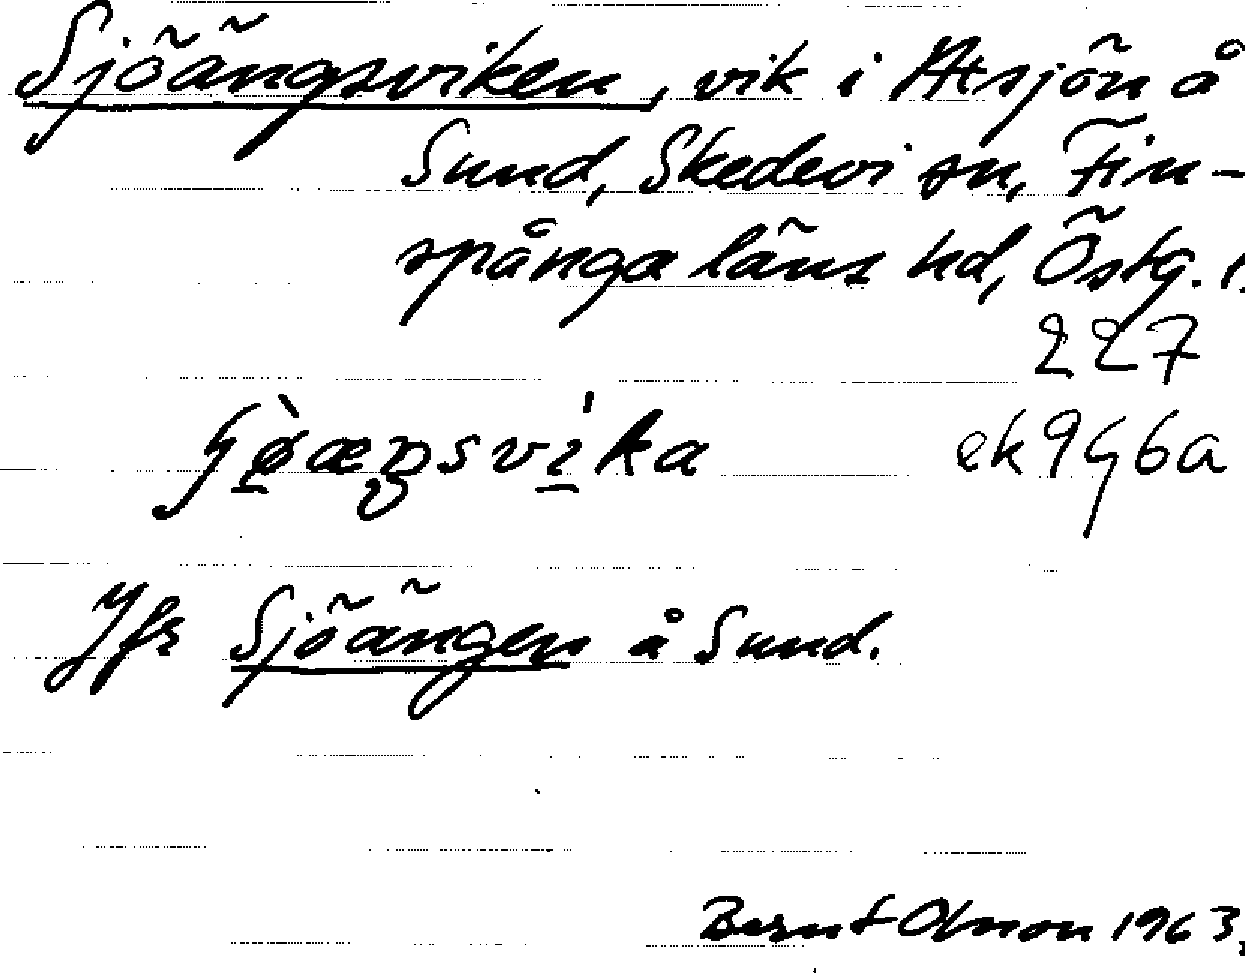 Sjöängsviken, vik i Attsjön å
Sund, Skedevi sn, Fin-
spånga läns hd, Östg. l.
227
ek 9g6a
Jfr Sjöängen å Sund.
Bernt Olsson 1963.